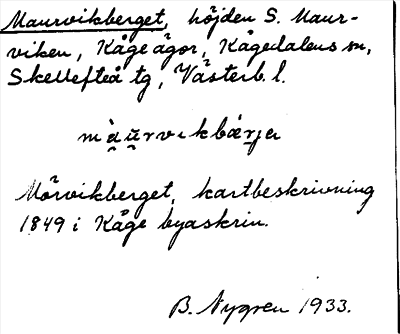 Maurvikberget, höjden S. Maur-
viken, Kåge ägor, Kågedalens sn,
Skellefteå tg, Västerb. l.
Mörvikberget, kartbeskrivning
1849 i Kåge byaskrin.
B. Nygren 1933.